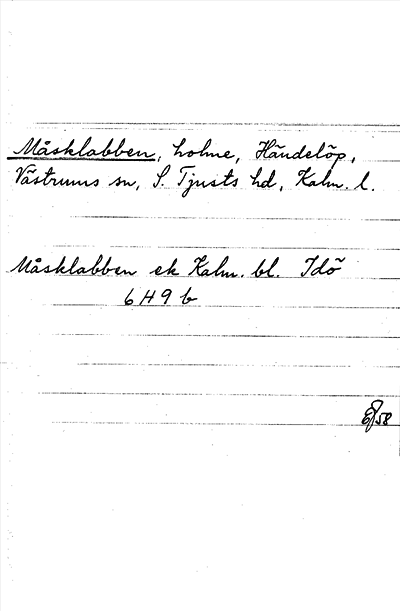 Måsklabben, holme, Händelöp,
Västrums sn, S. Tjusts hd, Kalm. l.
Måsklabben ek Kalm. bl. Idö
6H9b